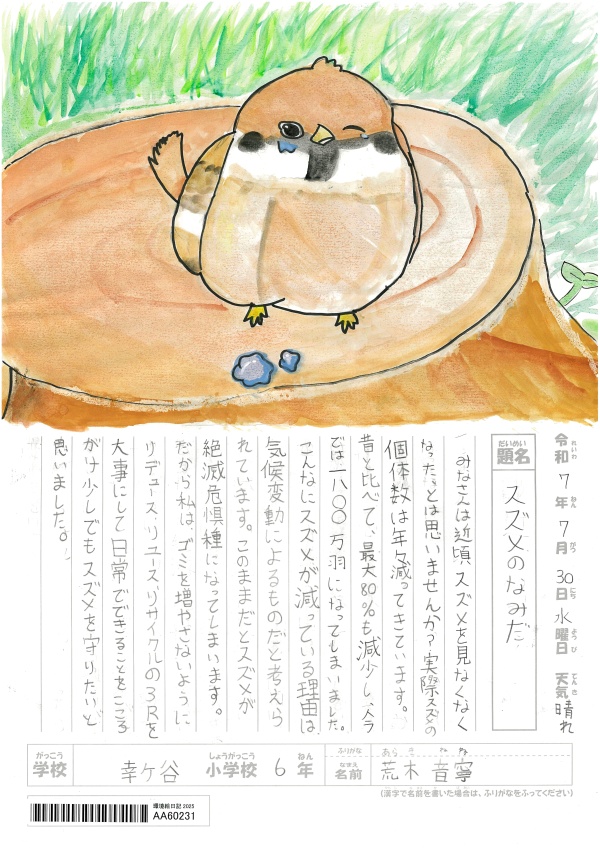 令和7年7月30日水曜日 天気晴れ
れいわ ねん がつ にち ようび てんき
だいめい
題名 スズメのなみだ
みなさんは近頃スズメを見なくなく
なったとは思いませんか?実際スズメの
個体数は年々減ってきています。
昔と比べて、最大80%も減少し、今
では一八〇〇万羽になってしまいました。
こんなにスズメが減っている理由は
気候変動によるものだと考えら
れています。このままだとスズメが
絶滅危惧種になってしまいます。
だから私は、ゴミを増やさないように
リデュース・リユース・リサイクルの3Rを
大事にして日常でできることをこころ
がけ少しでもスズメを守りたいと
思いました。
がっこう しょうがっこう ねん
学校 幸ケ谷 小学校 6年
ふりがな あら き ねね
なまえ
名前 荒木 音寧
(漢字で名前を書いた場合は、ふりがなをふってください)
環境絵日記 2025
AA60231